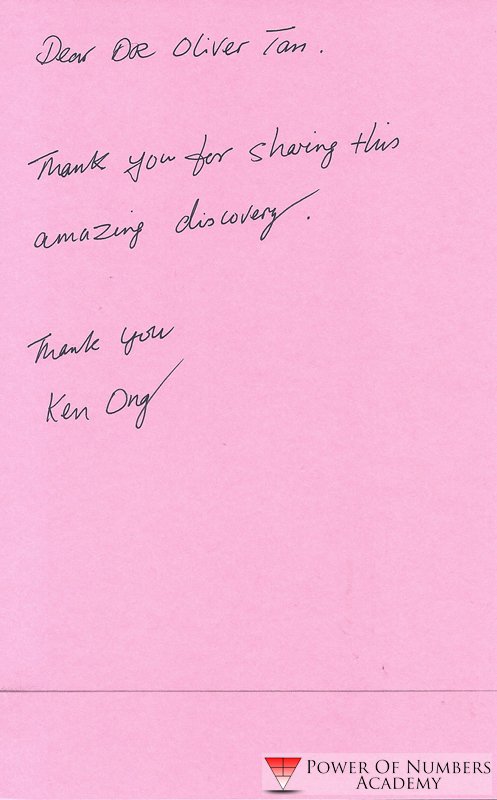 Dear DR Oliver Tan.
Thank you for sharing this
amazing discovery.
Thank you
Ken Ong
POWER OF NUMBERS
ACADEMY